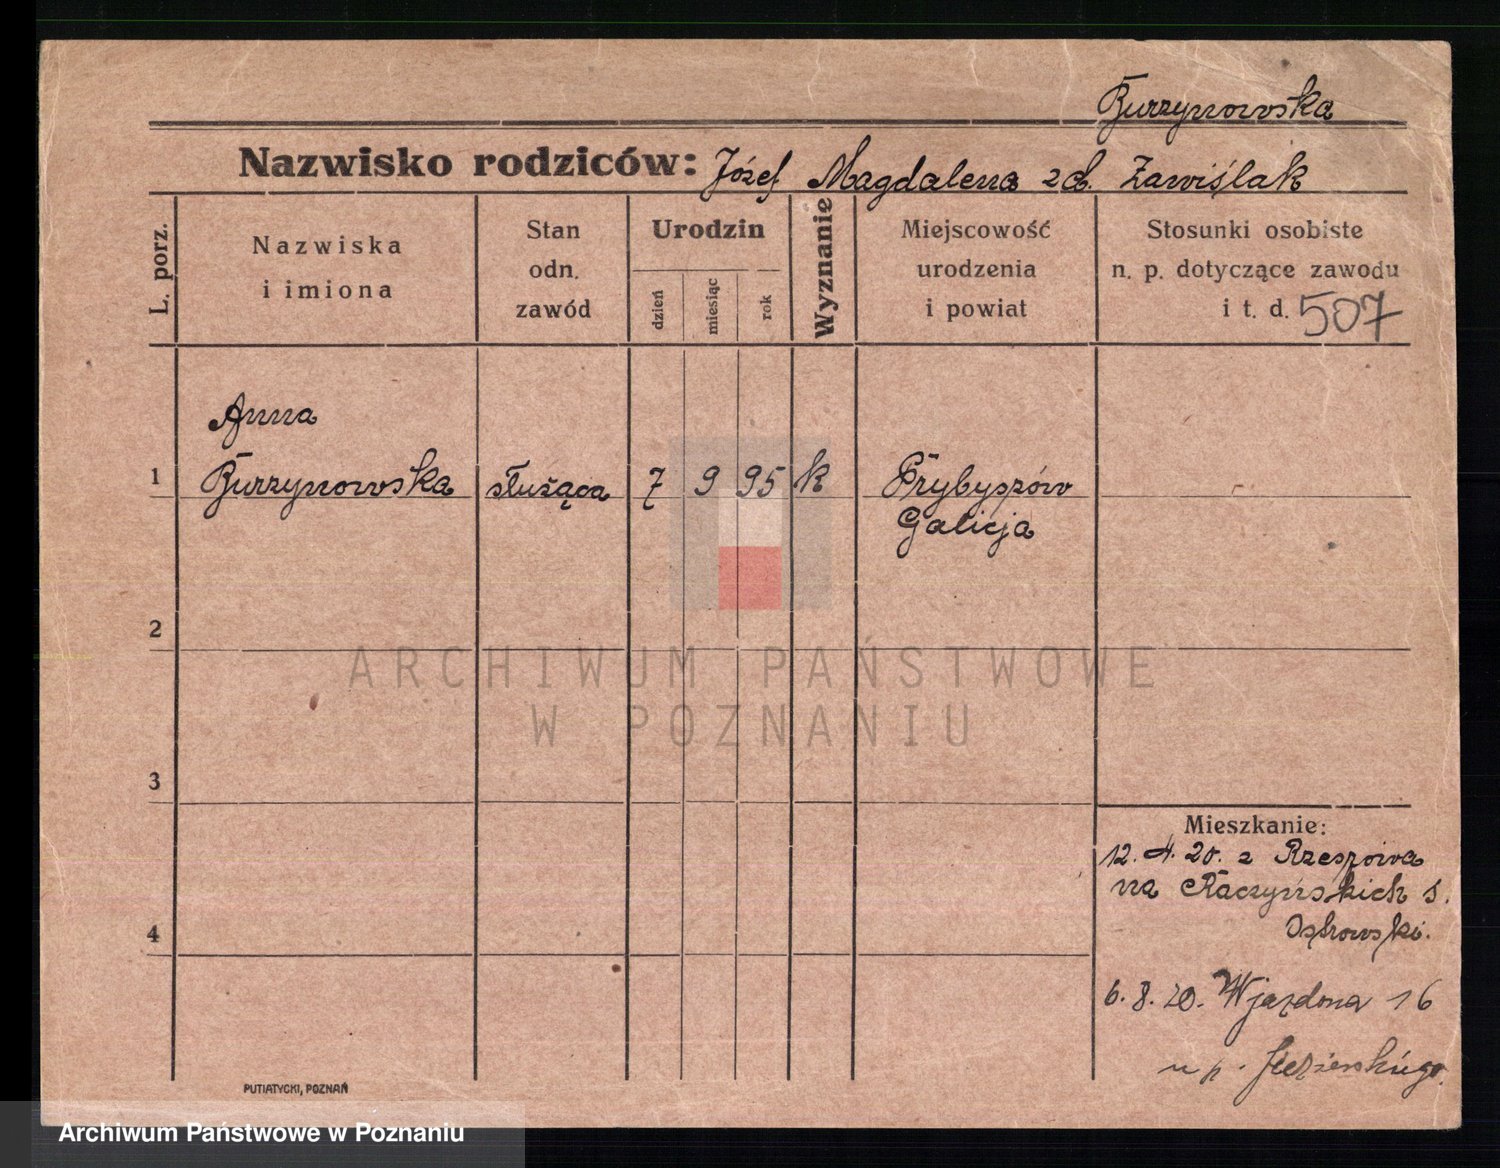 Burzynowska
Nazwisko rodziców: Józef Magdalena zd. Zawiślak
L. porz.
Nazwiska
i imiona
Stan
odn.
zawód
Urodzin
dzień
miesiąc
rok
Wyznanie
Miejscowość
urodzenia
i powiat
Stosunki osobiste
n. p. dotyczące zawodu
i t. d. 507
Anna
1 Burzynowska służąca 7 9 95 k Przybyszów
Galicja
2
ARCHIWUM PAŃSTWOWE
W POZNANIU
3
Mieszkanie:
12. 4. 20. z Rzeszowa
na Raczyńskich
4
6. 8. 20. Wjazdowa 16
u p.
PUTIATYCKI, POZNAŃ
Archiwum Państwowe w Poznaniu